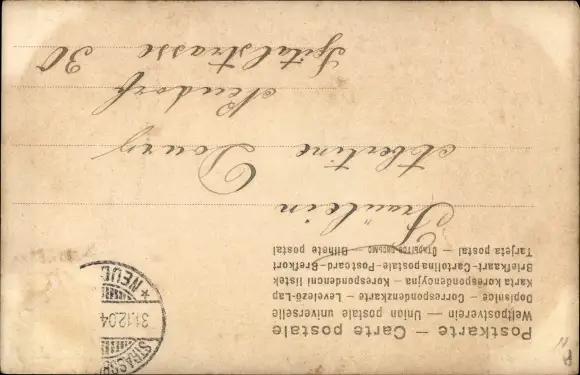 Postkarte – Carte postale
Weltpostverein – Union postale universelle
Dopisnice – Correspondenzkarte – Levelező-Lap
Karta korespondencyjna – Korespondenční listek
Briefkaart – Cartolina postale – Postcard – Brefkort
Tarjeta postal – Открытое письмо – Bilhete postal
Fräulein
Albertine Doury
Neudorf
Spitalstrasse 30
STRASSB
31.12.04
* NEUD